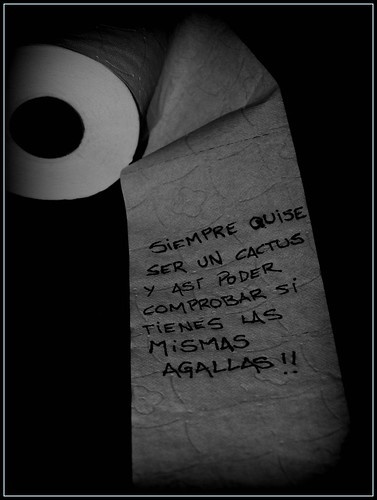 SIEMPRE QUISE
SER UN CACTUS
Y ASI PODER
COMPROBAR SI
TIENES LAS
MISMAS
AGALLAS!!